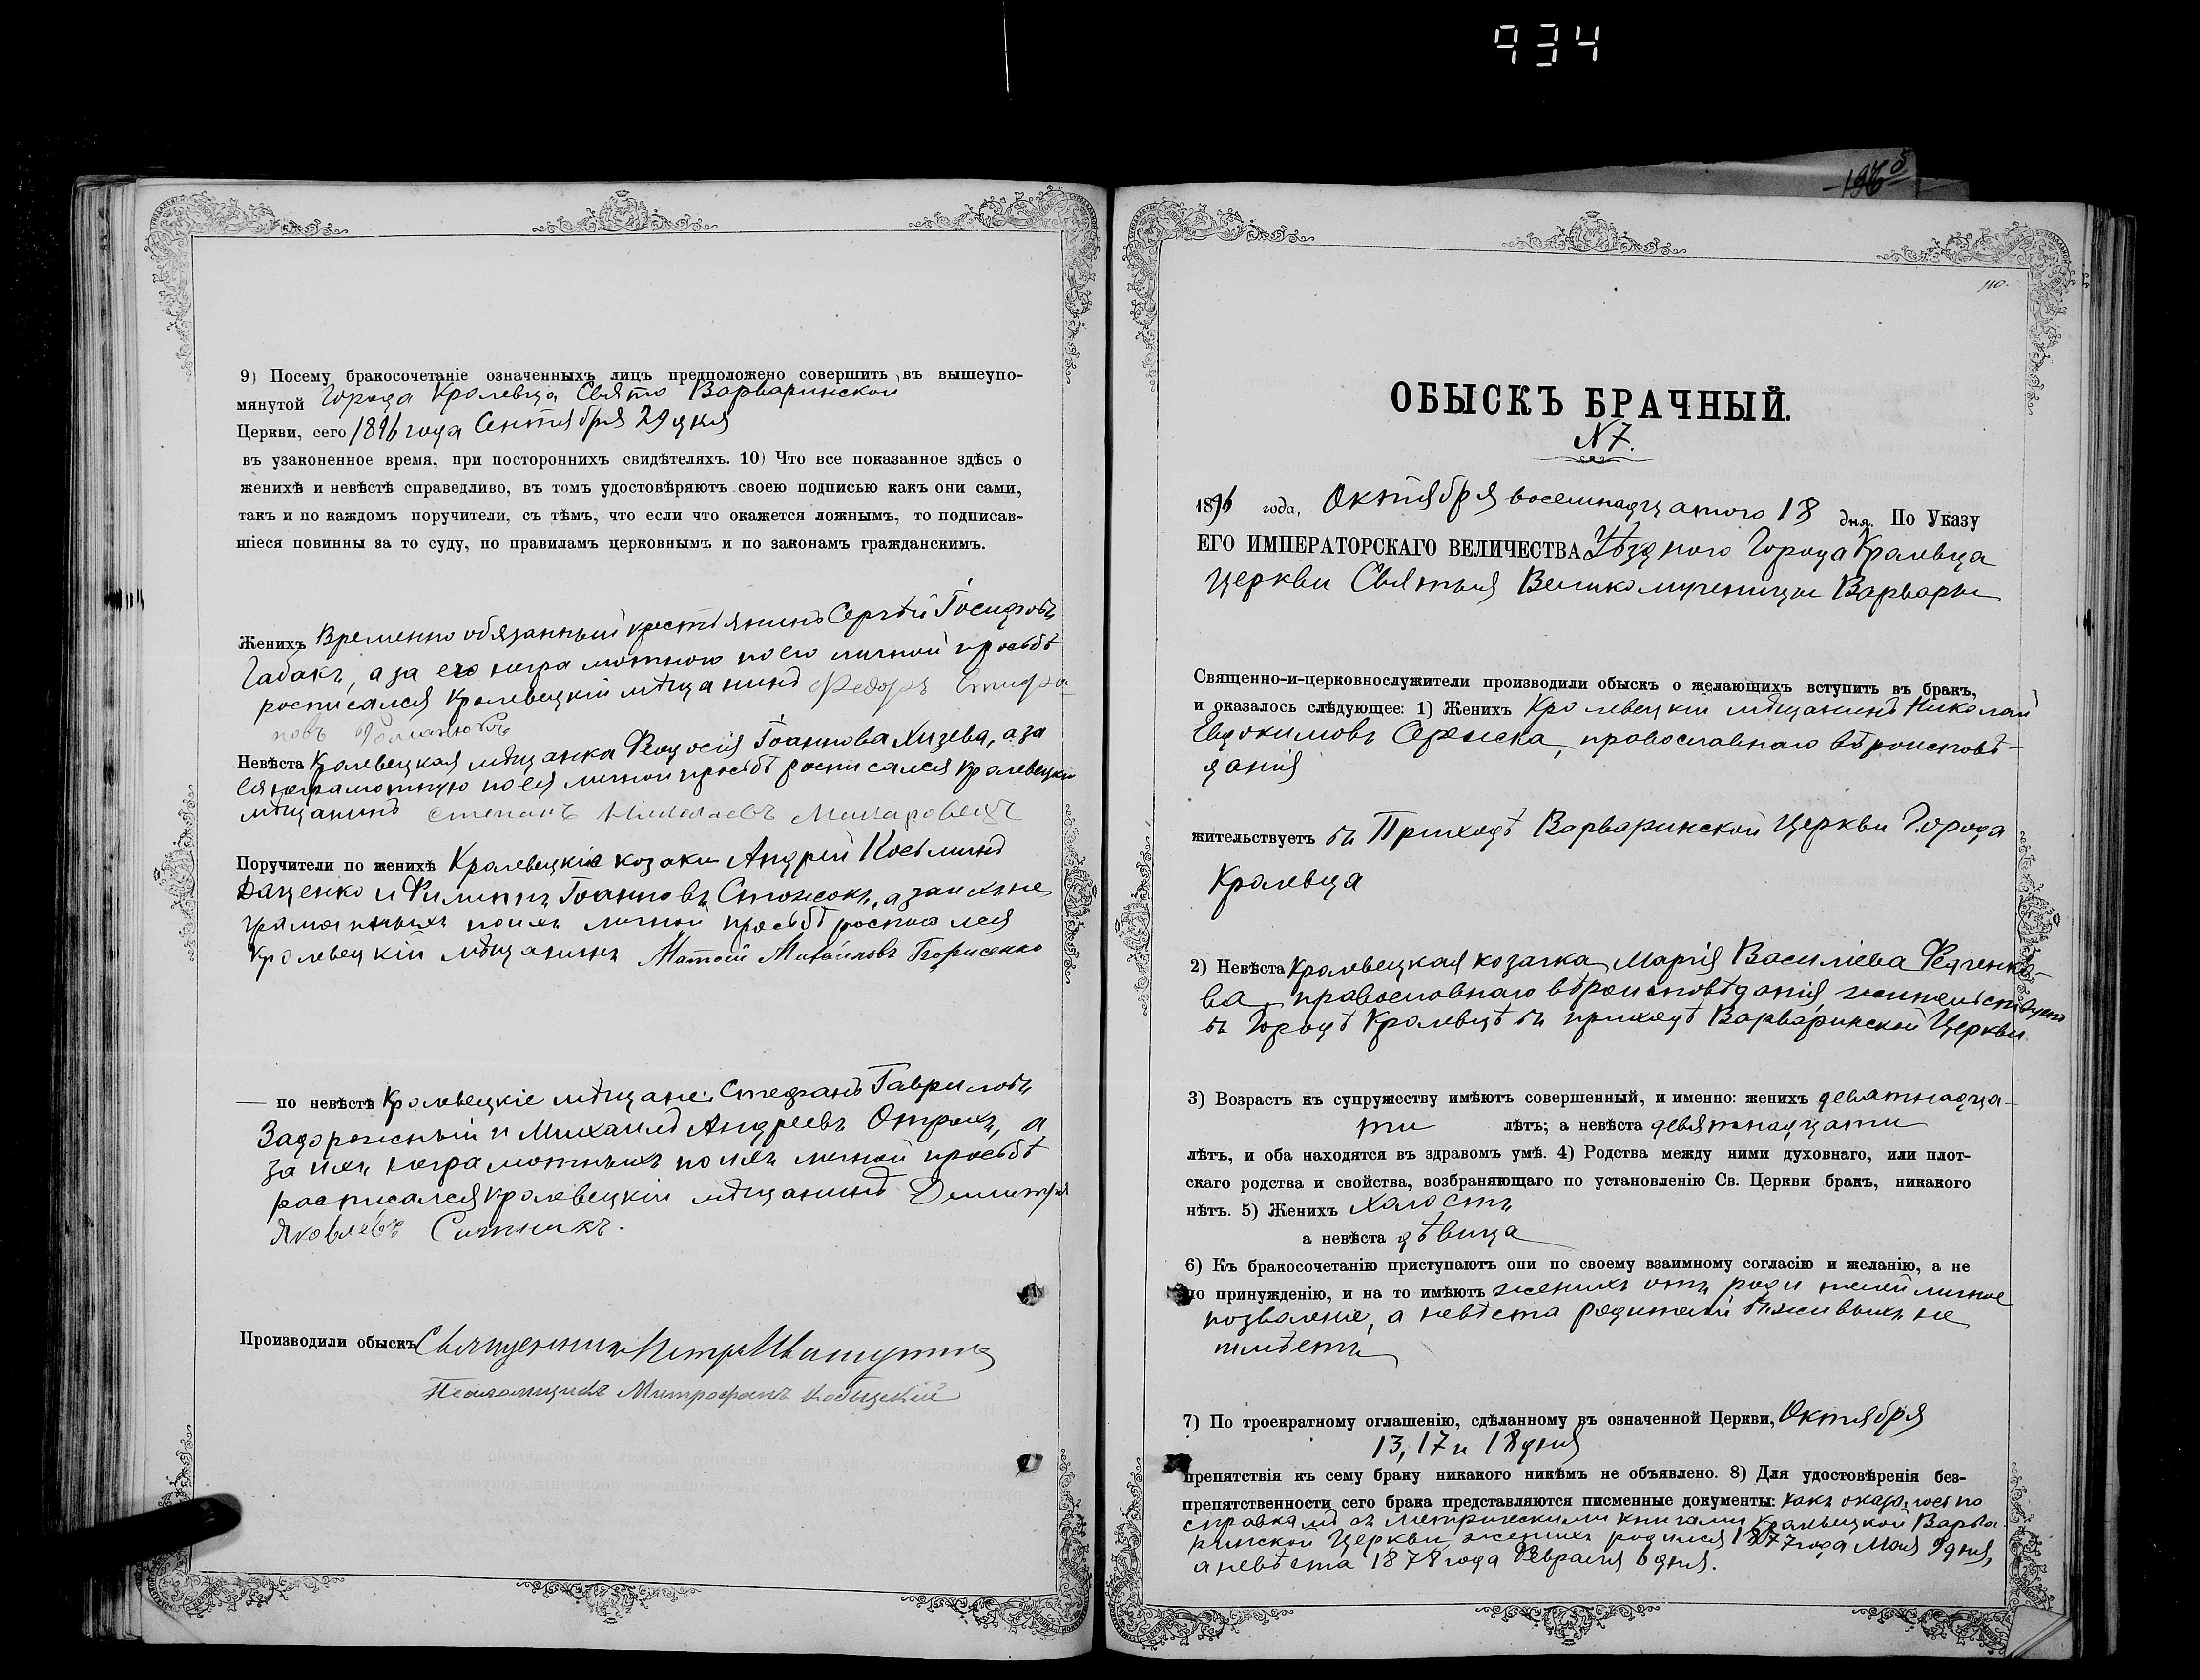 934
1965
9) Посему бракосочетаніе означенныхъ лицъ предположено совершить въ вышеупо-
мянутой Города Кролевца Свято Варваринской
Церкви, сего 1896 года Сентября 29 дня
въ узаконенное время, при постороннихъ свидѣтеляхъ. 10) Что все показанное здѣсь о
женихѣ и невѣстѣ справедливо, въ томъ удостовѣряютъ своею подписью какъ они сами,
такъ и по каждомъ поручители, съ тѣмъ, что если что окажется ложнымъ, то подписав-
шіеся повинны за то суду, по правиламъ церковнымъ и по законамъ гражданскимъ.
Женихъ Временно обязанный крестьянинъ Сергѣй Іосифовъ
Габакъ, а за его неграмотного по его личной просьбѣ
росписался Кролевецкій мѣщанинъ Федоръ
Невѣста Кролевецкая мѣщанка Феодосія Іоаннова Хизева, а за
ея неграмотную по ея личной просьбѣ росписался Кролевецкій
мѣщанинъ Степанъ Николаевъ
Поручители по женихѣ Кролевецкіе козаки Андрей Косьминъ
Даценко и Филиппъ Іоанновъ Стожокъ, а за ихъ не
грамотныхъ по ихъ личной просьбѣ росписался
Кролевецкій мѣщанинъ Матѳей Михаиловъ Борисенко
— по невѣстѣ Кролевецкіе мѣщане: Стефанъ Гавриловъ
Задорожный и Михаилъ Андреевъ Отрохъ, а
за ихъ неграмотныхъ по ихъ личной просьбѣ
расписался Кролевецкій мѣщанинъ Димитрій
Яковлевъ Ситникъ.
Производили обыскъ Священникъ Петръ
Псаломщикъ Митрофанъ
110.
ОБЫСКЪ БРАЧНЫЙ.
N 7.
1896 года, Октября восемнадцатого 18 дня. По Указу
ЕГО ИМПЕРАТОРСКАГО ВЕЛИЧЕСТВА Уѣздного Города Кролевца
Церкви Святыя Великомученицы Варвары
Священно-и-церковнослужители производили обыскъ о желающихъ вступить въ бракъ,
и оказалось слѣдующее: 1) Женихъ Кролевецкій мѣщанинъ Николай
Евдокимовъ Сережка, православнаго вѣроисповѣ-
данія
жительствуетъ въ Приходѣ Варваринской Церкви Города
Кролевца
2) Невѣста Кролевецкая козачка Марія Василіева Федченко-
ва, православнаго вѣроисповѣданія, жительствуетъ
въ Городѣ Кролевцѣ въ приходѣ Варваринской Церкви
3) Возрастъ къ супружеству имѣютъ совершенный, и именно: женихъ девятнадца-
ти лѣтъ; а невѣста девятнадцати
лѣтъ, и оба находятся въ здравомъ умѣ. 4) Родства между ними духовнаго, или плот-
скаго родства и свойства, возбраняющаго по установленію Св. Церкви бракъ, никакого
нѣтъ. 5) Женихъ холостъ
а невѣста дѣвица
6) Къ бракосочетанію приступаютъ они по своему взаимному согласію и желанію, а не
по принужденію, и на то имѣютъ женихъ отъ родителей личное
позволеніе, а невѣста родителей въ живыхъ не
имѣетъ
7) По троекратному оглашенію, сдѣланному въ означенной Церкви, Октября
13, 17 и 18 дня
препятствія къ сему браку никакого никѣмъ не объявлено. 8) Для удостовѣренія без-
препятственности сего брака представляются писменные документы: какъ оказалось по
справкамъ съ метрическими книгами Кролевецкой Варва
ринской Церкви женихъ родился 1877 года Мая 9 дня,
а невѣста 1878 года Февраля 6 дня.